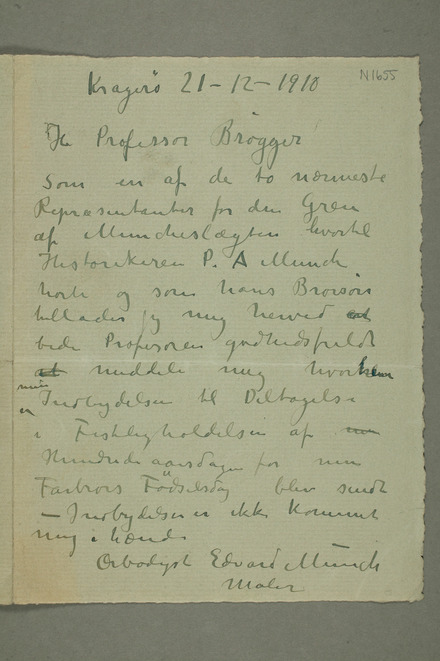 N1655
Kragerø 21–12–1910
Hr Professor Brøgger
Som en af de to nærmeste
Repræsentanter for den Gren
af Munchslægten hvortil
Historikeren P. A Munch
hørte og som hans Brorsøn
tillader jeg mig herved at
bede Professoren godhedsfuldt
at meddele mig hvorhen
min
Indbydelse til Deltagelse
i Festligholdelsen af
Hundredeaarsdagen for min
Farbrors Fødselsdag blev sendt
– Indbydelsen er ikke kommet
mig i hænde
Ærbødigst Edvard Munch
Maler